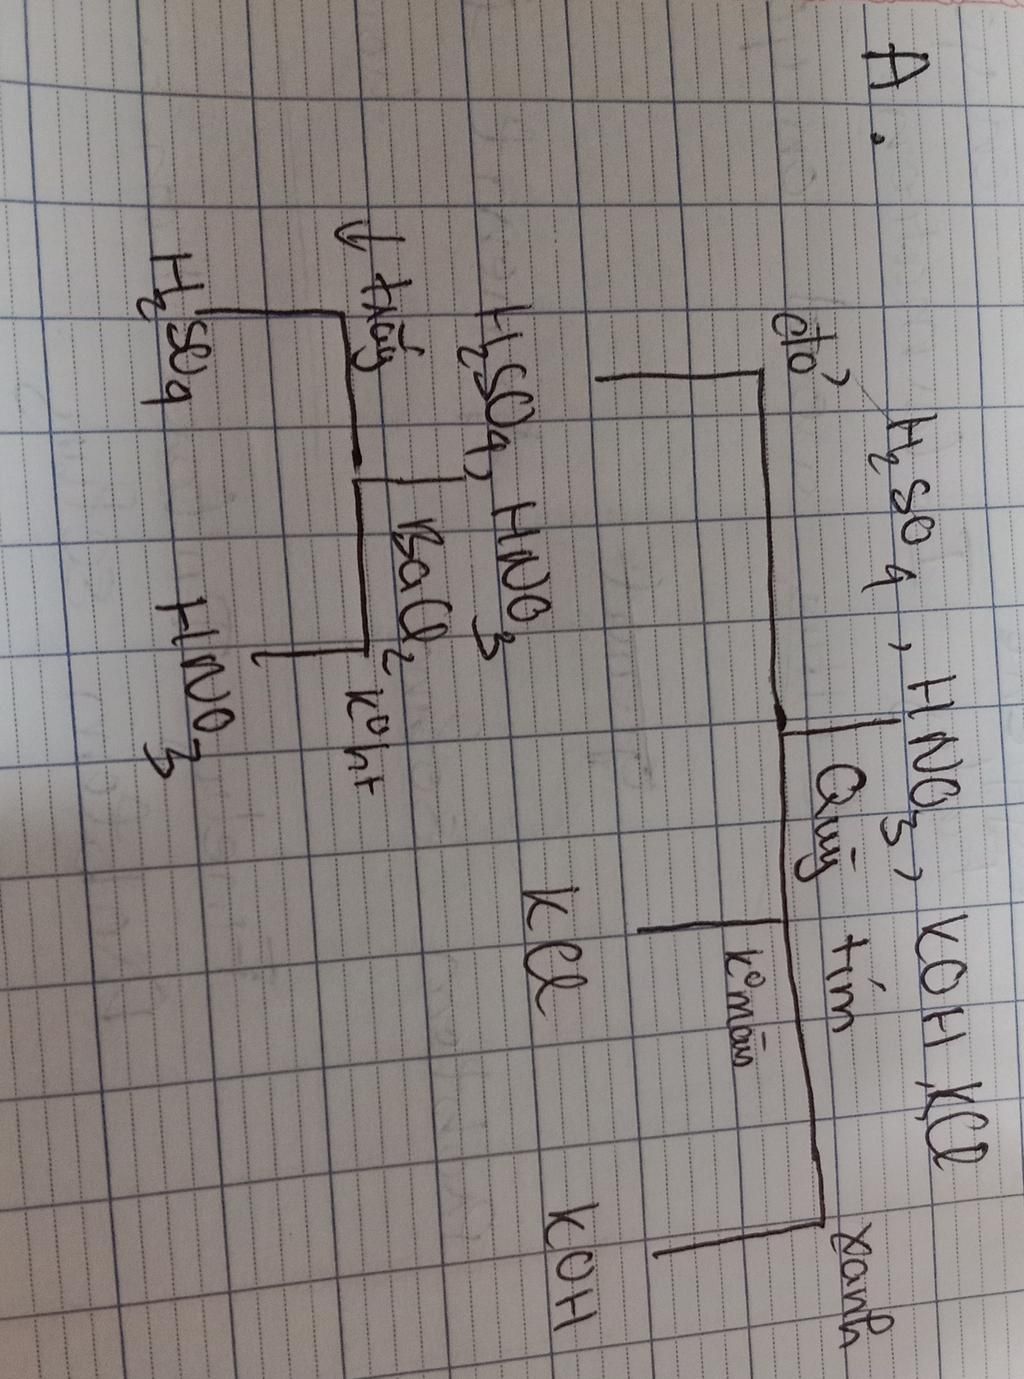 A.
H₂SO₄, HNO₃, KOH, KCl
Quỳ tím
đỏ
k° màu
xanh
H₂SO₄, HNO₃
KCl
KOH
BaCl₂
↓ trắng
k° ht
H₂SO₄
HNO₃